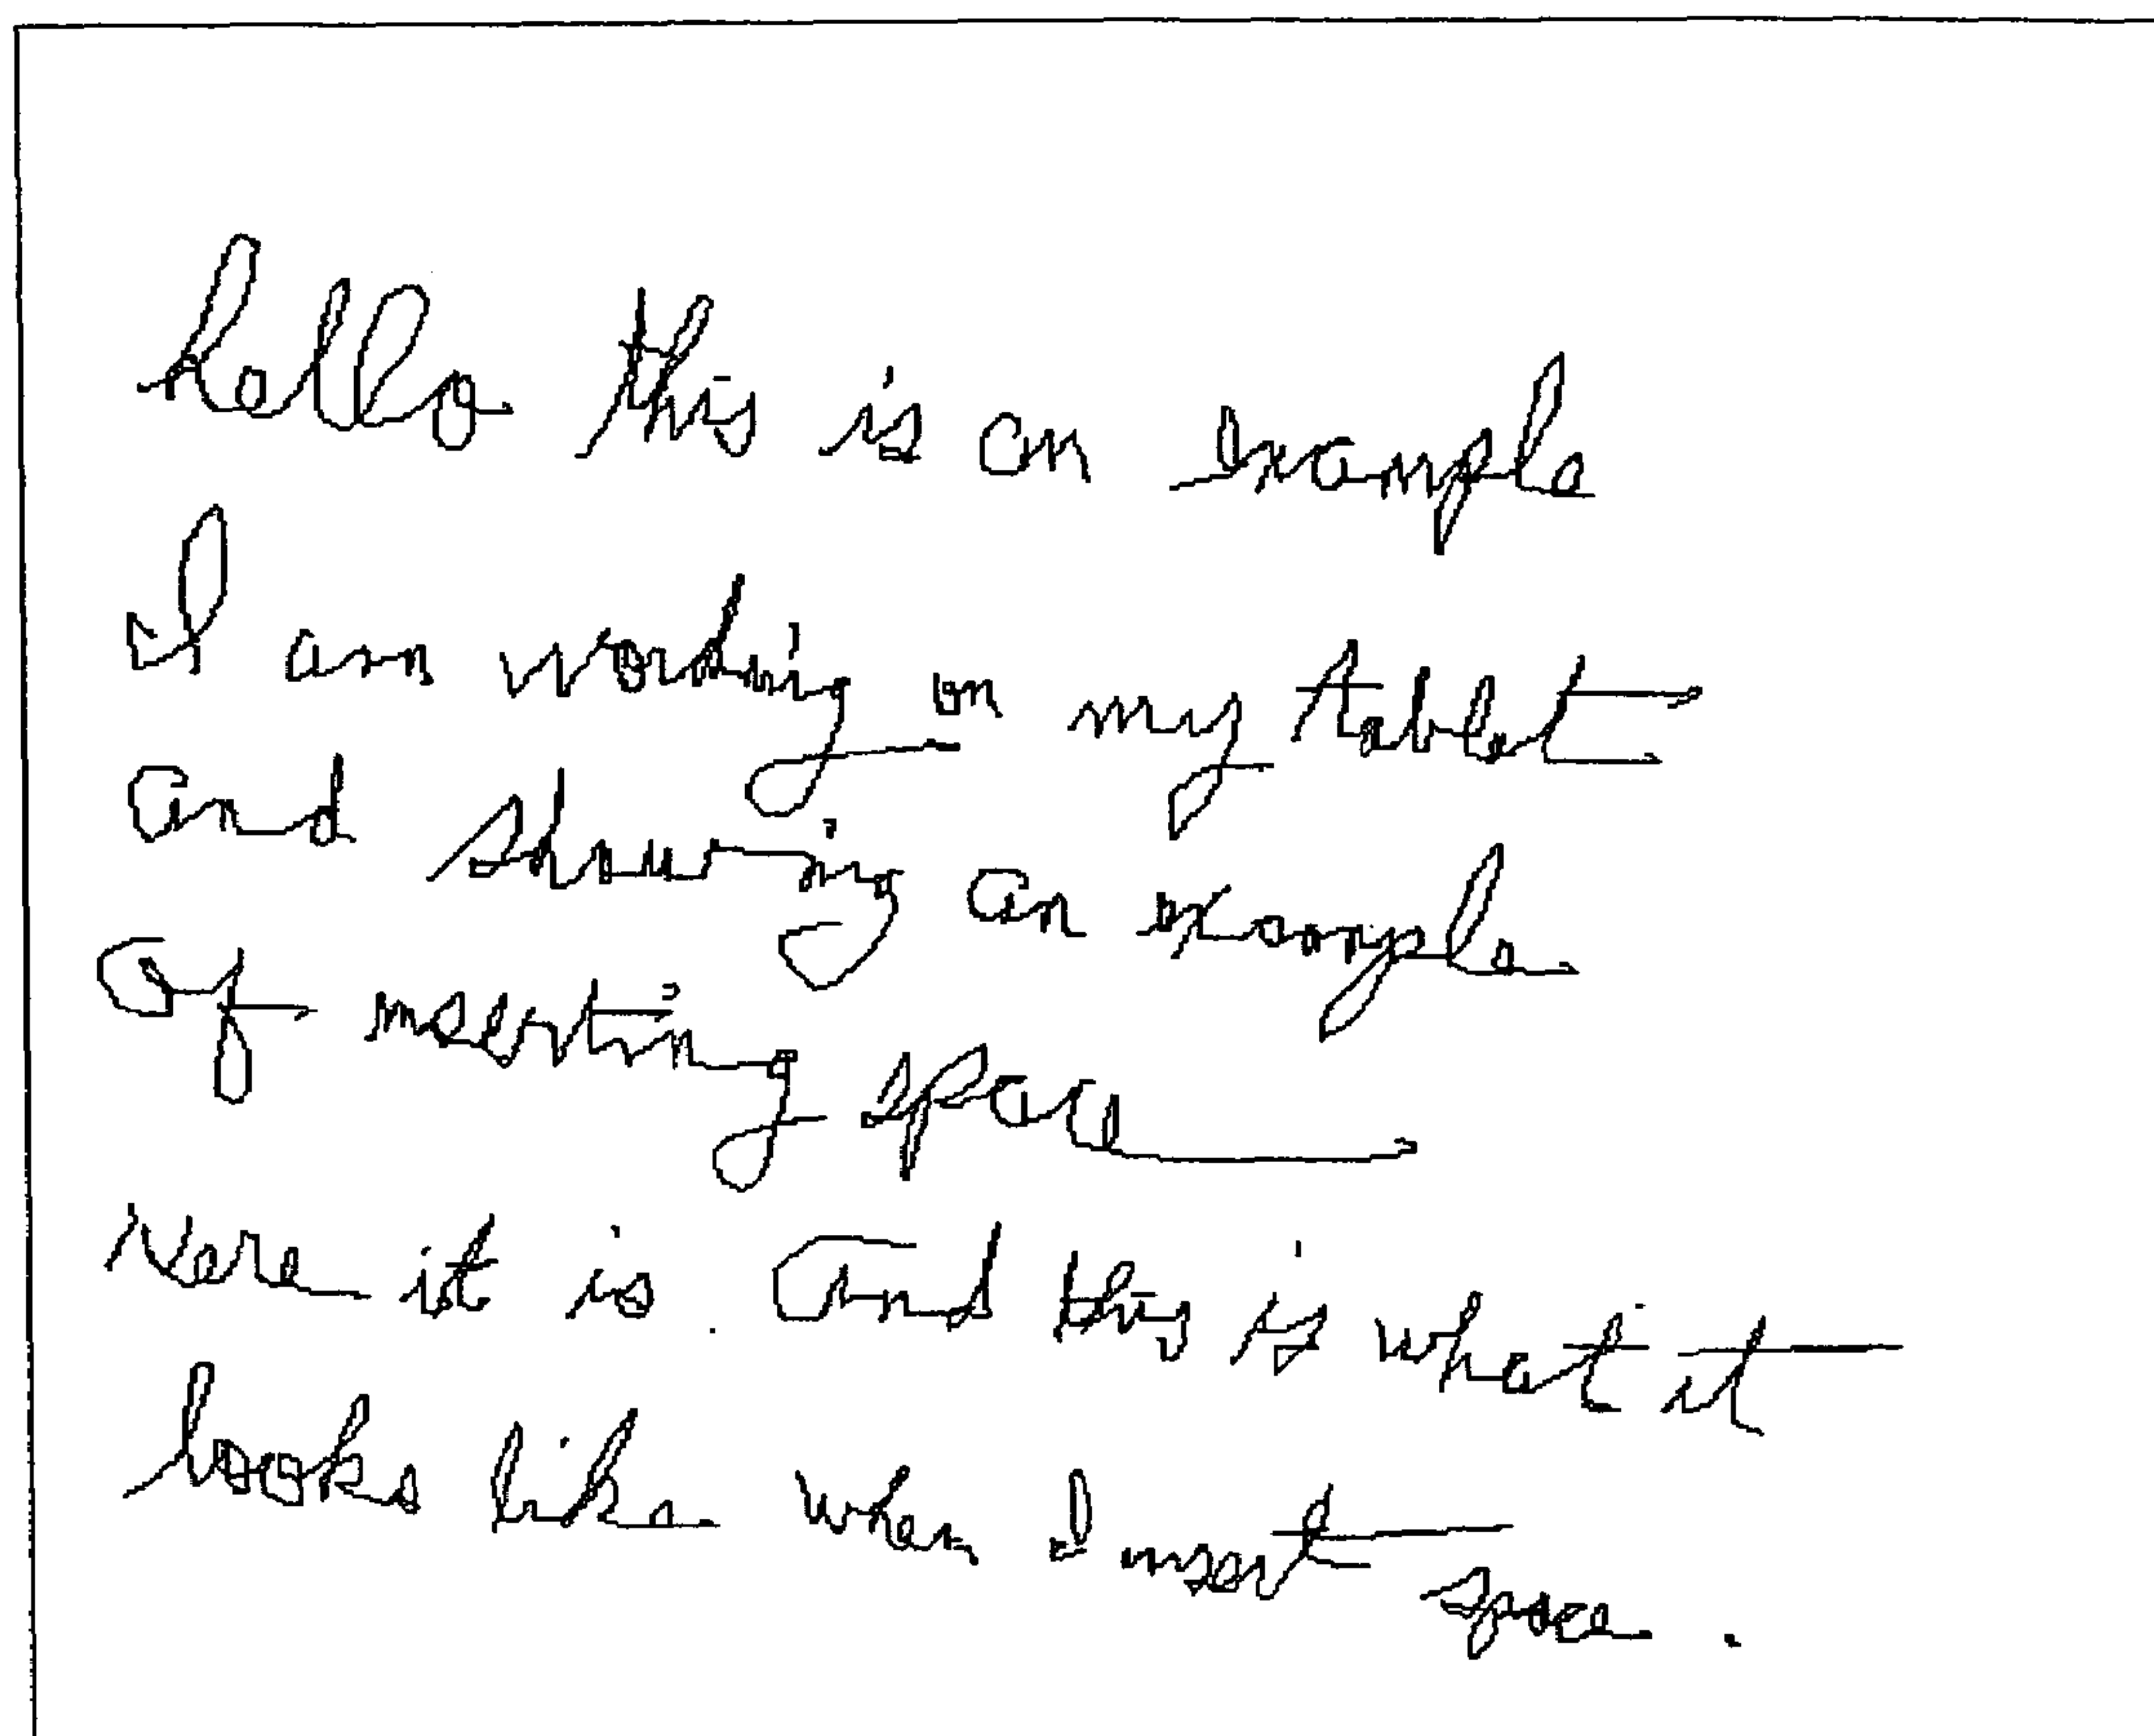 hello this is an example
I am working on my tablet
and showing an example
of inserting space
Here it is. And this is what it
looks like when I insert space.